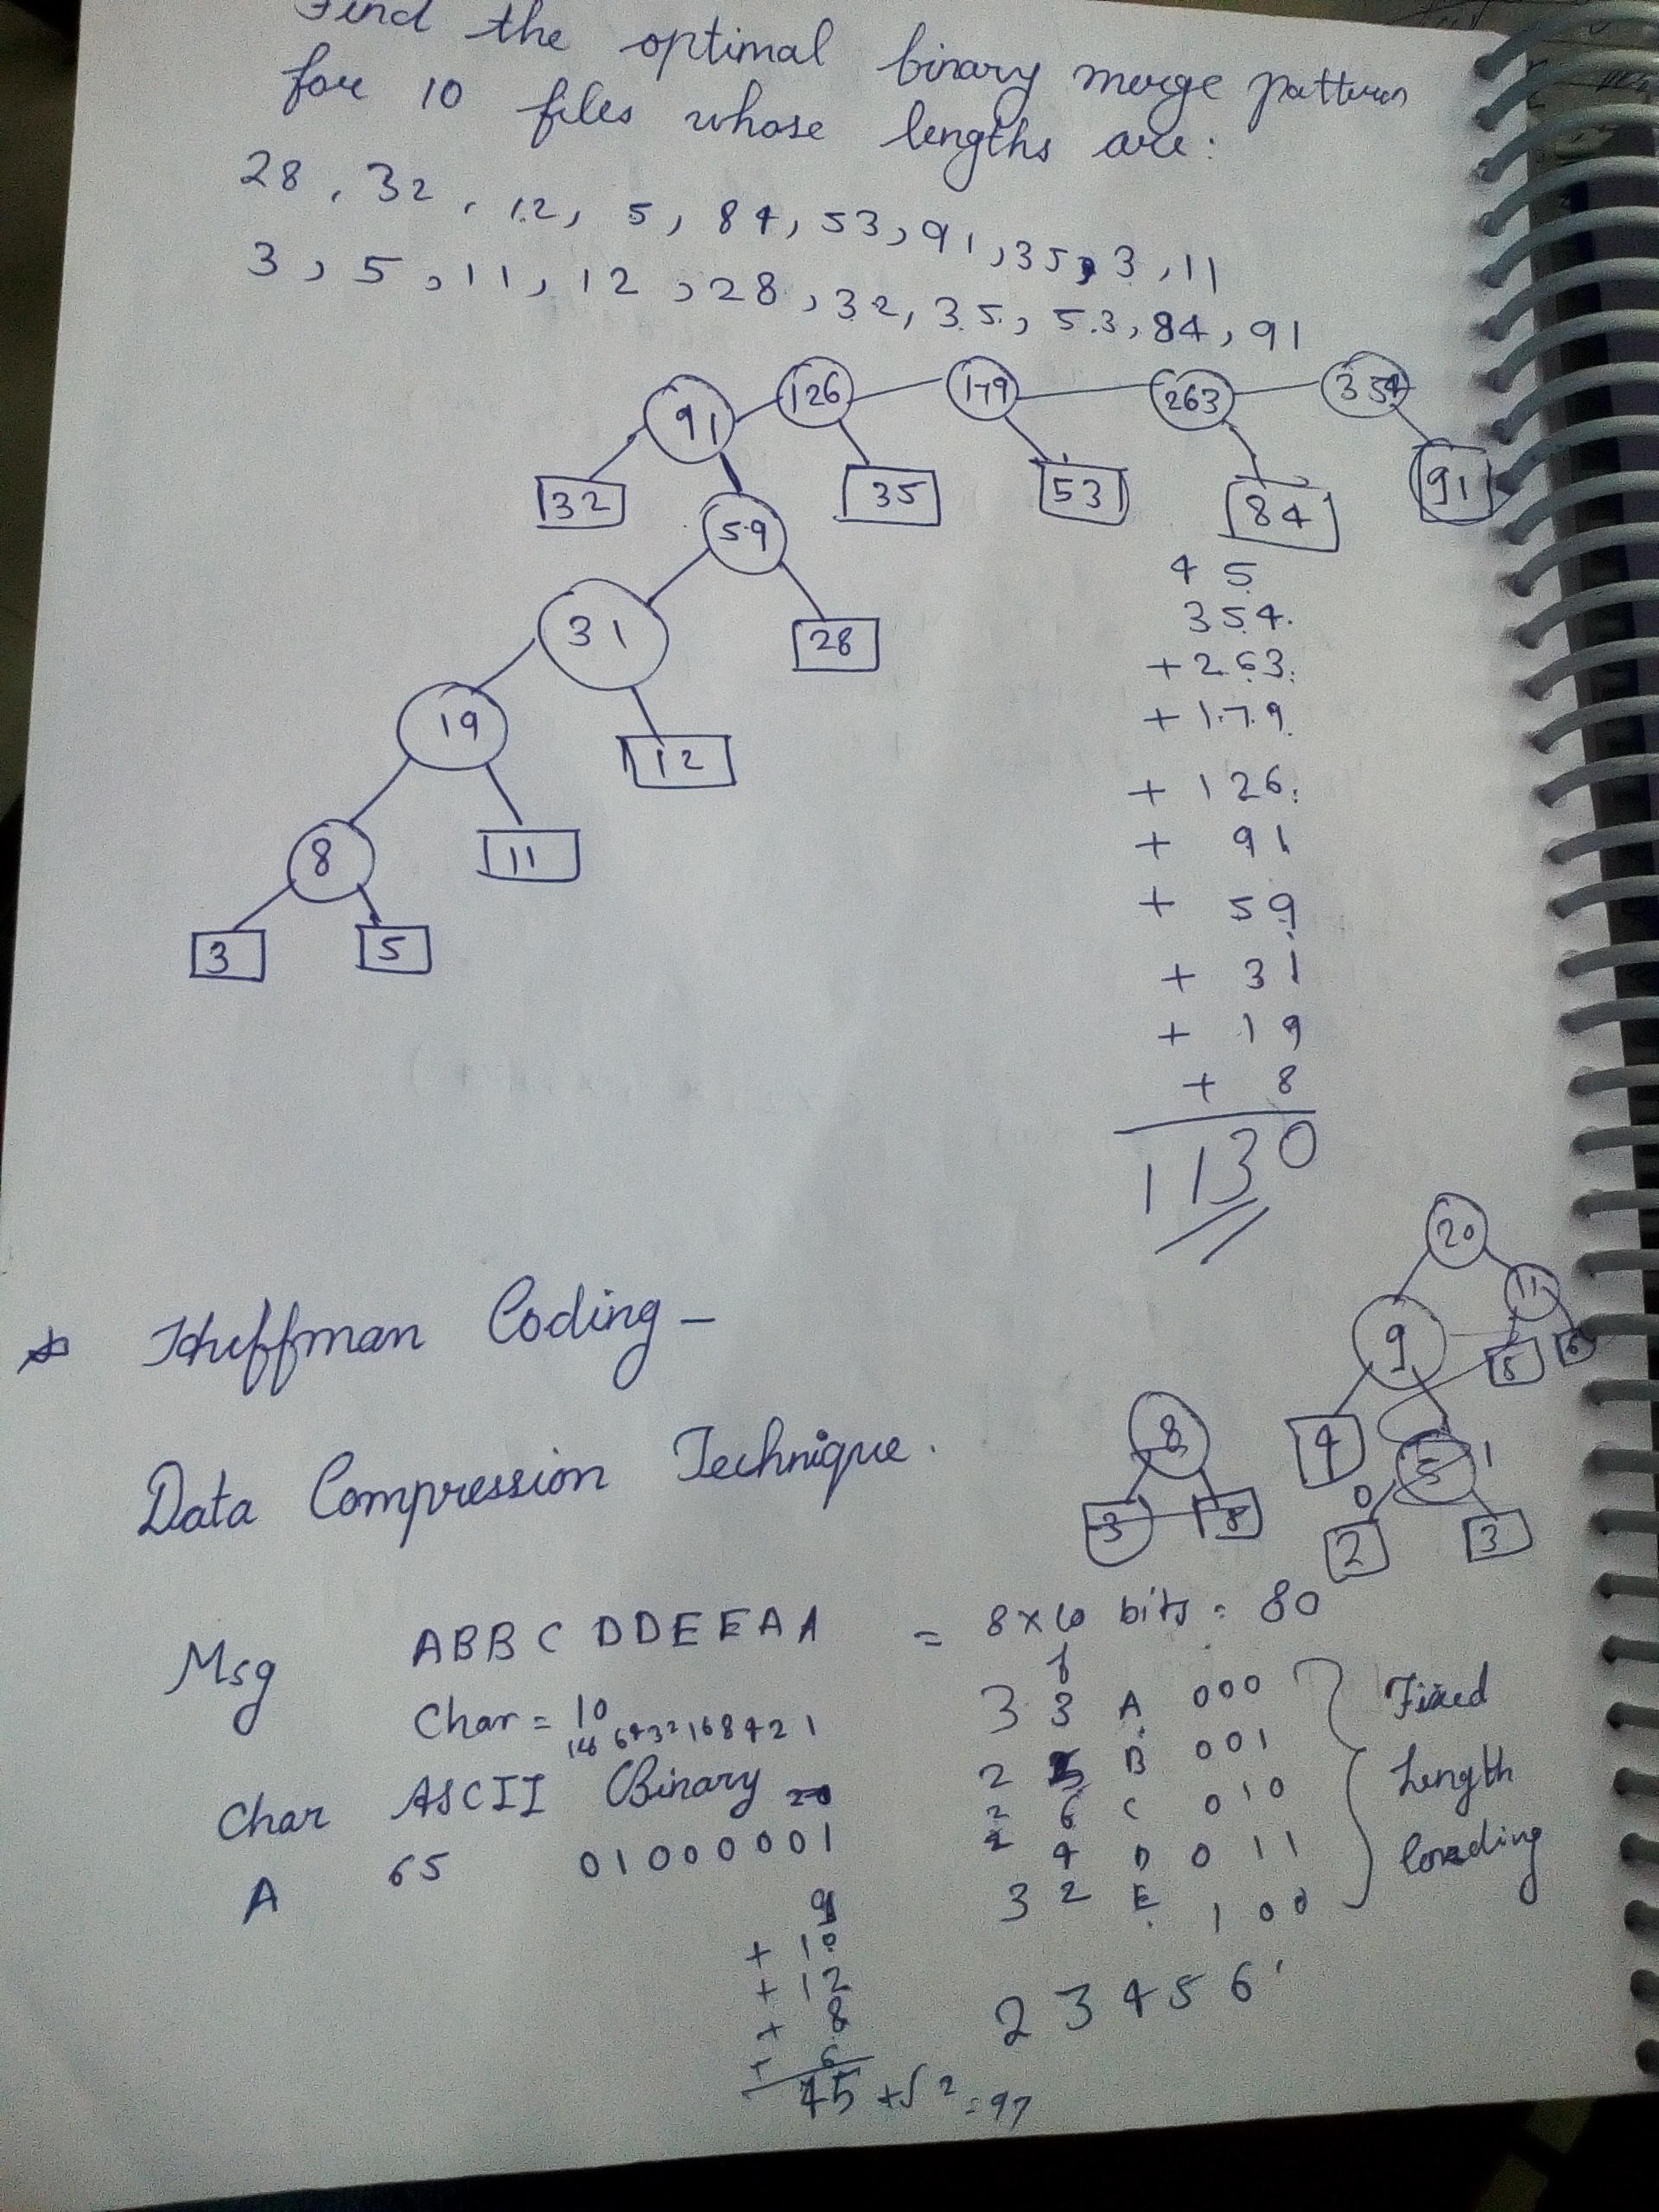 Find the optimal binary merge pattern
for 10 files whose lengths are:
28, 32, 12, 5, 84, 53, 91, 35, 3, 11
3, 5, 11, 12, 28, 32, 35, 53, 84, 91
91 126 179 263 354
32 35 53 84 91
59
31 28
19 12
8 11
3 5
4 5
354
+263
+179
+126
+ 91
+ 59
+ 31
+ 19
+ 8
1130
20
9 11
5 6
4 5 1
0
2 3
8
3
Huffman Coding -
Data Compression Technique.
Msg ABBCDDEEAA = 8x10 bits = 80
Char = 10
64 32 16 8 4 2 1
Char ASCII Binary
A 65 01000001
3 3 A 000
2 5 B 001
2 6 C 010
4 D 011
3 2 E 100
Fixed
Length
9
+ 10
+ 12
+ 8
+ 6
45 + 52 = 97
2 3 4 5 6